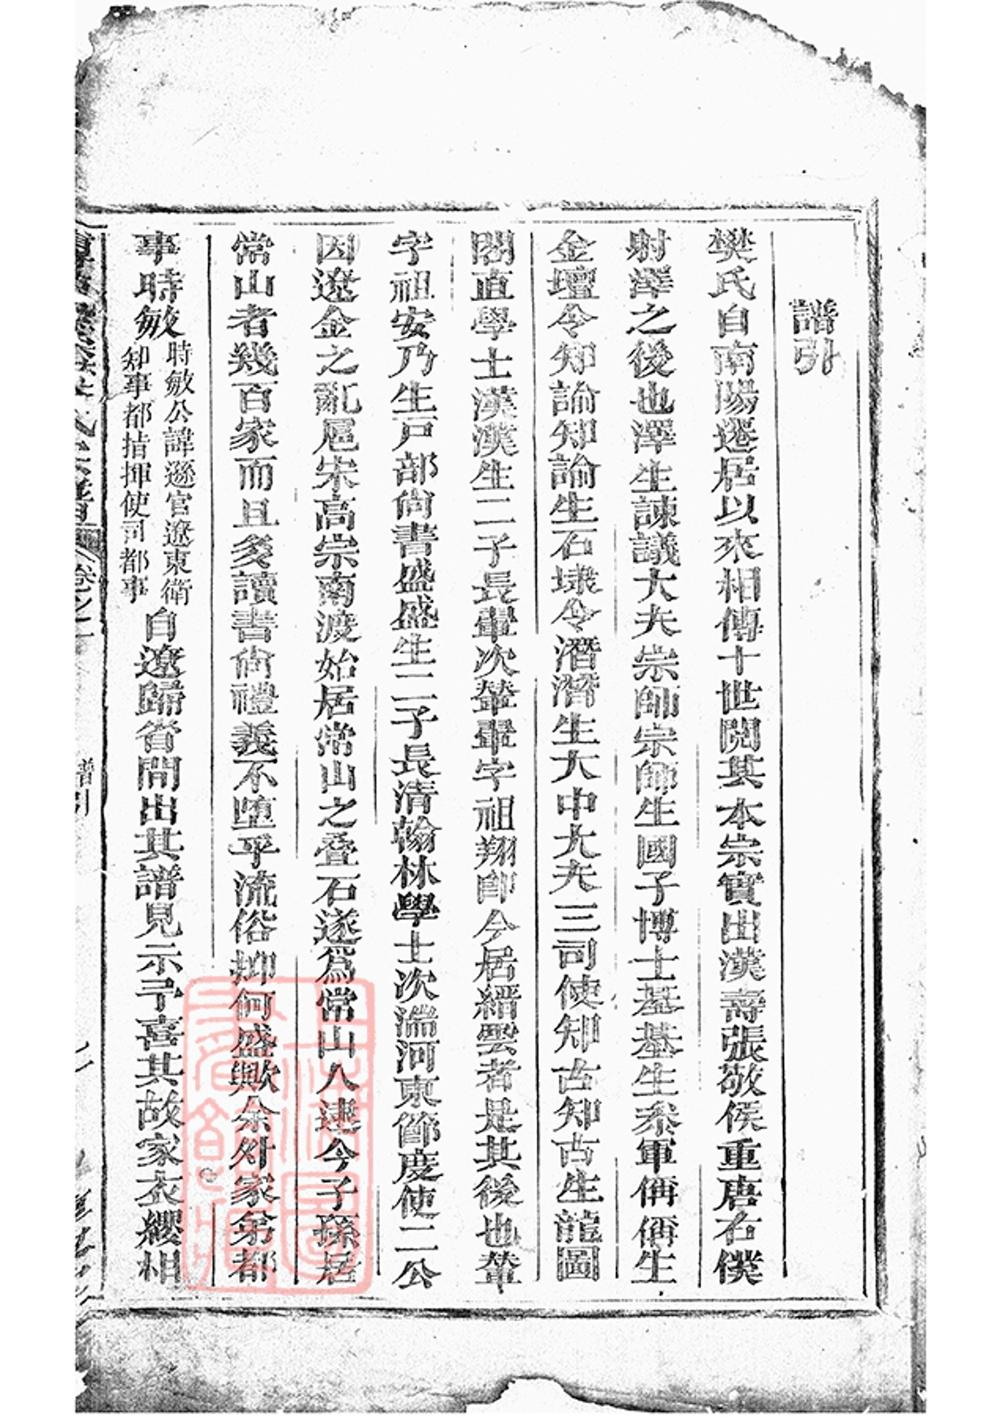 譜引
樊氏自南陽遷居以來相傳十世閱其本宗實出漢壽張敬侯重唐右僕
射澤之後也澤生諫議大夫宗師宗師生國子博士基基生叅軍偁偁生
金壇令知諭知諭生石埭令潛潛生大中大夫三司使知古知古生龍圖
閣直學士漢漢生二子長暈次輦暈字祖翔卽今居縉雲者是其後也輦
字祖安乃生戸部尙書盛盛生二子長清翰林學士次湍河東節度使二公
因遼金之亂扈宋高宗南渡始居常山之叠石遂爲常山人逮今子孫居
常山者幾百家而且多讀書尙禮義不墮乎流俗抑何盛歟余外家弟都
事時敏時敏公諱遜官遼東衛知事都指揮使司都事自遼歸省間出其譜見示予喜其故家衣纓相
譜引